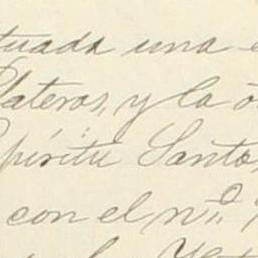 tuada una e
Plateros, y la o
Espíritu Santo,
con el n.º